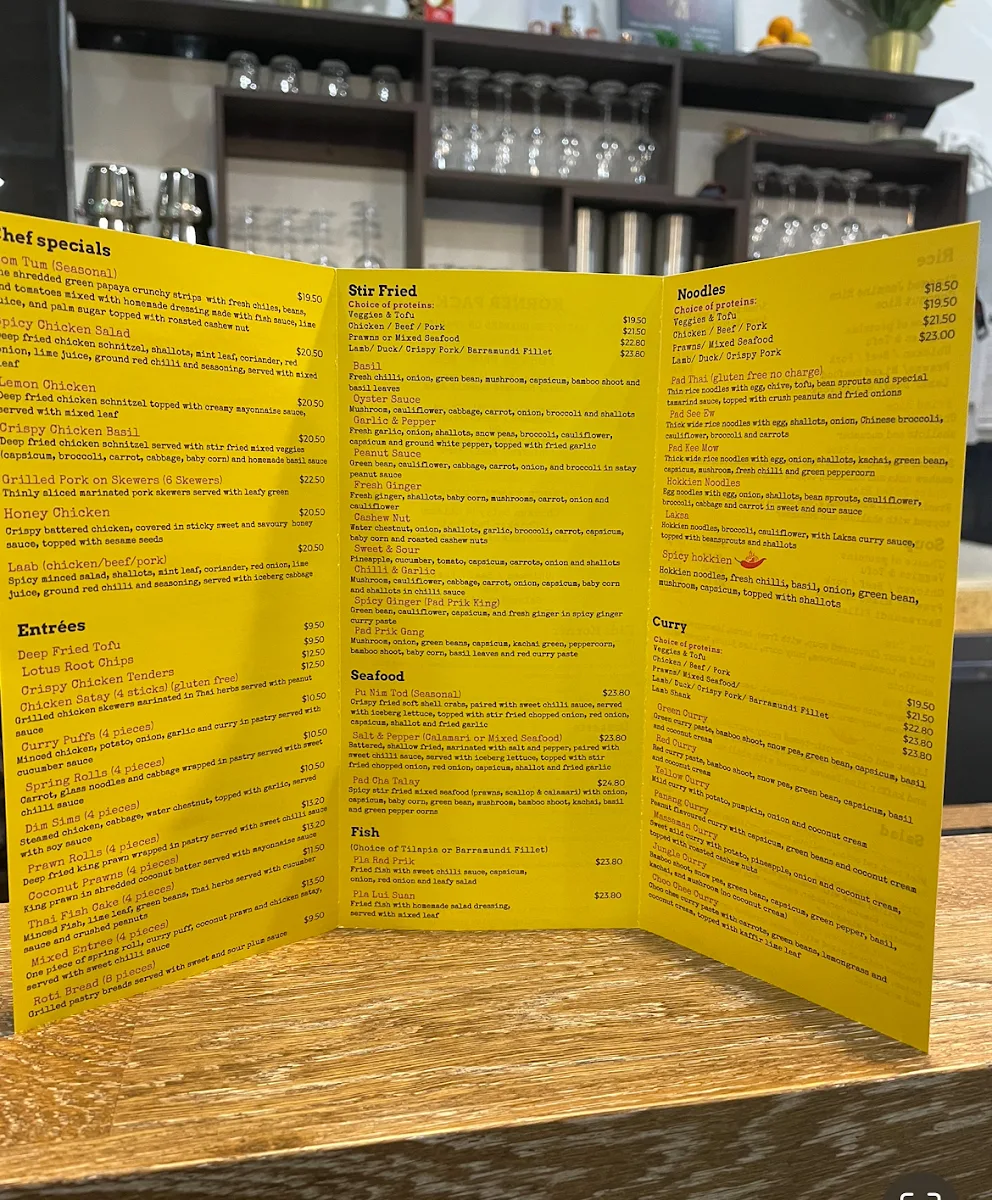 hef specials
om Tum (Seasonal) $19.50
ne shredded green papaya crunchy strips with fresh chiles, beans,
nd tomatoes mixed with homemade dressing made with fish sauce, lime
uice, and palm sugar topped with roasted cashew nut
picy Chicken Salad $20.50
eep fried chicken schnitzel, shallots, mint leaf, coriander, red
onion, lime juice, ground red chilli and seasoning, served with mixed
leaf
Lemon Chicken $20.50
Deep fried chicken schnitzel topped with creamy mayonnaise sauce,
served with mixed leaf
Crispy Chicken Basil $20.50
Deep fried chicken schnitzel served with stir fried mixed veggies
(capsicum, broccoli, carrot, cabbage, baby corn) and homemade basil sauce
Grilled Pork on Skewers (6 Skewers) $22.50
Thinly sliced marinated pork skewers served with leafy green
Honey Chicken $20.50
Crispy battered chicken, covered in sticky sweet and savoury honey
sauce, topped with sesame seeds
Laab (chicken/beef/pork) $20.50
Spicy minced salad, shallots, mint leaf, coriander, red onion, lime
juice, ground red chilli and seasoning, served with iceberg cabbage
Entrées
Deep Fried Tofu $9.50
Lotus Root Chips $9.50
Crispy Chicken Tenders $12.50
Chicken Satay (4 sticks) (gluten free) $12.50
Grilled chicken skewers marinated in Thai herbs served with peanut
sauce
Curry Puffs (4 pieces) $10.50
Minced chicken, potato, onion, garlic and curry in pastry served with
cucumber sauce
Spring Rolls (4 pieces) $10.50
Carrot, glass noodles and cabbage wrapped in pastry served with sweet
chilli sauce
Dim Sims (4 pieces) $10.50
Steamed chicken, cabbage, water chestnut, topped with garlic, served
with soy sauce
Prawn Rolls (4 pieces) $13.20
Deep fried king prawn wrapped in pastry served with sweet chilli sauce
Coconut Prawns (4 pieces) $13.20
King prawn in shredded coconut batter served with mayonnaise sauce
Thai Fish Cake (4 pieces) $11.50
Minced Fish, lime leaf, green beans, Thai herbs served with cucumber
sauce and crushed peanuts
Mixed Entree (4 pieces) $13.50
One piece of spring roll, curry puff, coconut prawn and chicken satay,
served with sweet chilli sauce
Roti Bread (8 pieces) $9.50
Grilled pastry breads served with sweet and sour plum sauce
Stir Fried
Choice of proteins:
Veggies & Tofu $19.50
Chicken / Beef / Pork $21.50
Prawns or Mixed Seafood $22.80
Lamb/ Duck/ Crispy Pork/ Barramundi Fillet $23.80
Basil
Fresh chilli, onion, green bean, mushroom, capsicum, bamboo shoot and
basil leaves
Oyster Sauce
Mushroom, cauliflower, cabbage, carrot, onion, broccoli and shallots
Garlic & Pepper
Fresh garlic, onion, shallots, snow peas, broccoli, cauliflower,
capsicum and ground white pepper, topped with fried garlic
Peanut Sauce
Green bean, cauliflower, cabbage, carrot, onion, and broccoli in satay
peanut sauce
Fresh Ginger
Fresh ginger, shallots, baby corn, mushrooms, carrot, onion and
cauliflower
Cashew Nut
Water chestnut, onion, shallots, garlic, broccoli, carrot, capsicum,
baby corn and roasted cashew nuts
Sweet & Sour
Pineapple, cucumber, tomato, capsicum, carrots, onion and shallots
Chilli & Garlic
Mushroom, cauliflower, cabbage, carrot, onion, capsicum, baby corn
and shallots in chilli sauce
Spicy Ginger (Pad Prik King)
Green bean, cauliflower, capsicum, and fresh ginger in spicy ginger
curry paste
Pad Prik Gang
Mushroom, onion, green beans, capsicum, kachai green, peppercorn,
bamboo shoot, baby corn, basil leaves and red curry paste
Seafood
Pu Nim Tod (Seasonal) $23.80
Crispy fried soft shell crabs, paired with sweet chilli sauce, served
with iceberg lettuce, topped with stir fried chopped onion, red onion,
capsicum, shallot and fried garlic
Salt & Pepper (Calamari or Mixed Seafood) $23.80
Battered, shallow fried, marinated with salt and pepper, paired with
sweet chilli sauce, served with iceberg lettuce, topped with stir
fried chopped onion, red onion, capsicum, shallot and fried garlic
Pad Cha Talay $24.80
Spicy stir fried mixed seafood (prawns, scallop & calamari) with onion,
capsicum, baby corn, green bean, mushroom, bamboo shoot, kachai, basil
and green pepper corns
Fish
(Choice of Tilapia or Barramundi Fillet)
Pla Rad Prik $23.80
Fried fish with sweet chilli sauce, capsicum,
onion, red onion and leafy salad
Pla Lui Suan $23.80
Fried fish with homemade salad dressing,
served with mixed leaf
Noodles
Choice of proteins: $18.50
Veggies & Tofu $19.50
Chicken / Beef / Pork $21.50
Prawns/ Mixed Seafood $23.00
Lamb/ Duck/ Crispy Pork
Pad Thai (gluten free no charge)
Thin rice noodles with egg, chive, tofu, bean sprouts and special
tamarind sauce, topped with crush peanuts and fried onions
Pad See Ew
Thick wide rice noodles with egg, shallots, onion, Chinese broccoli,
cauliflower, broccoli and carrots
Pad Kee Mow
Thick wide rice noodles with egg, onion, shallots, kachai, green bean,
capsicum, mushroom, fresh chilli and green peppercorn
Hokkien Noodles
Egg noodles with egg, onion, shallots, bean sprouts, cauliflower,
broccoli, cabbage and carrot in sweet and sour sauce
Laksa
Hokkien noodles, broccoli, cauliflower, with Laksa curry sauce,
topped with beansprouts and shallots
Spicy hokkien
Hokkien noodles, fresh chilli, basil, onion, green bean,
mushroom, capsicum, topped with shallots
Curry
Choice of proteins:
Veggies & Tofu $19.50
Chicken / Beef / Pork $21.50
Prawns/ Mixed Seafood/ $22.80
Lamb/ Duck/ Crispy Pork/ Barramundi Fillet $23.80
Lamb Shank $23.80
Green Curry
Green curry paste, bamboo shoot, snow pea, green bean, capsicum, basil
and coconut cream
Red Curry
Red curry paste, bamboo shoot, snow pea, green bean, capsicum, basil
and coconut cream
Yellow Curry
Mild curry with potato, pumpkin, onion and coconut cream
Panang Curry
Peanut flavoured curry with capsicum, green beans and coconut cream
Massaman Curry
Sweet mild curry with potato, pineapple, onion and coconut cream,
topped with roasted cashew nuts
Jungle Curry
Bamboo shoot, snow pea, green bean, capsicum, green pepper, basil,
kachai, and mushroom (no coconut cream)
Choo Chee Curry
Choo chee curry paste with carrots, green beans, lemongrass and
coconut cream, topped with kaffir lime leaf